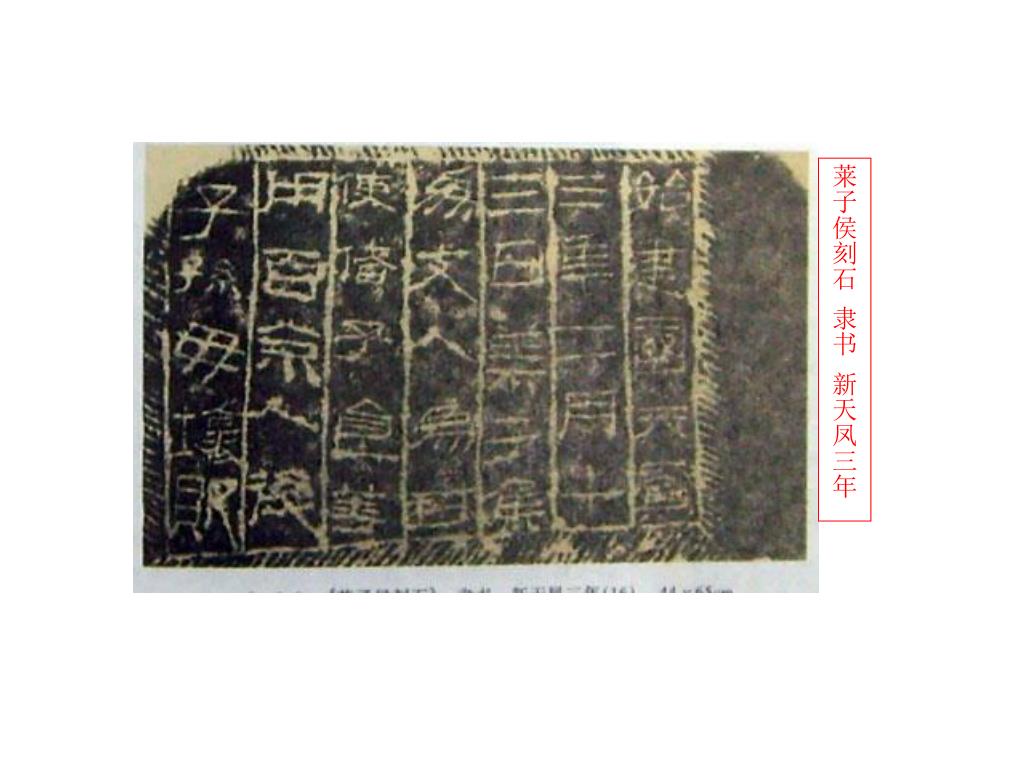 莱子侯刻石 隶书 新天凤三年
始建國天鳳
三年二月十
三日萊子侯
為支人為封
使偖子食等
用百余人後
子孫毋壞敗